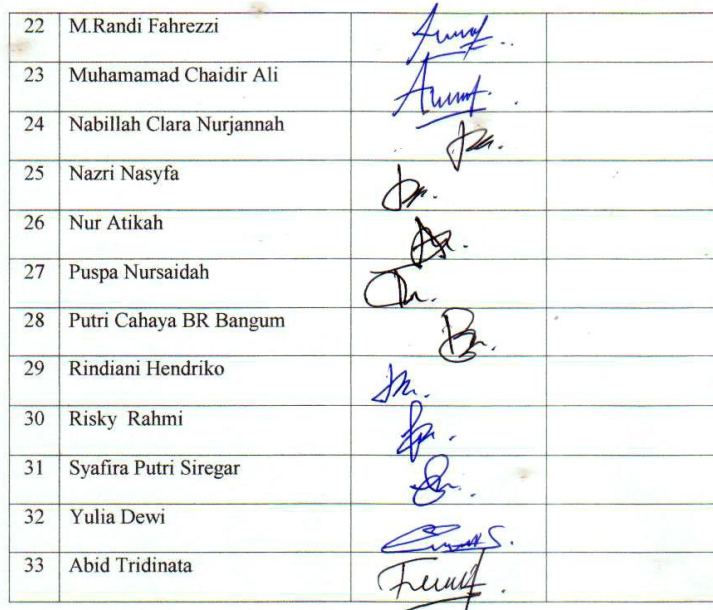 22 M.Randi Fahrezzi
23 Muhamamad Chaidir Ali
24 Nabillah Clara Nurjannah
25 Nazri Nasyfa
26 Nur Atikah
27 Puspa Nursaidah
28 Putri Cahaya BR Bangum
29 Rindiani Hendriko
30 Risky Rahmi
31 Syafira Putri Siregar
32 Yulia Dewi
33 Abid Tridinata